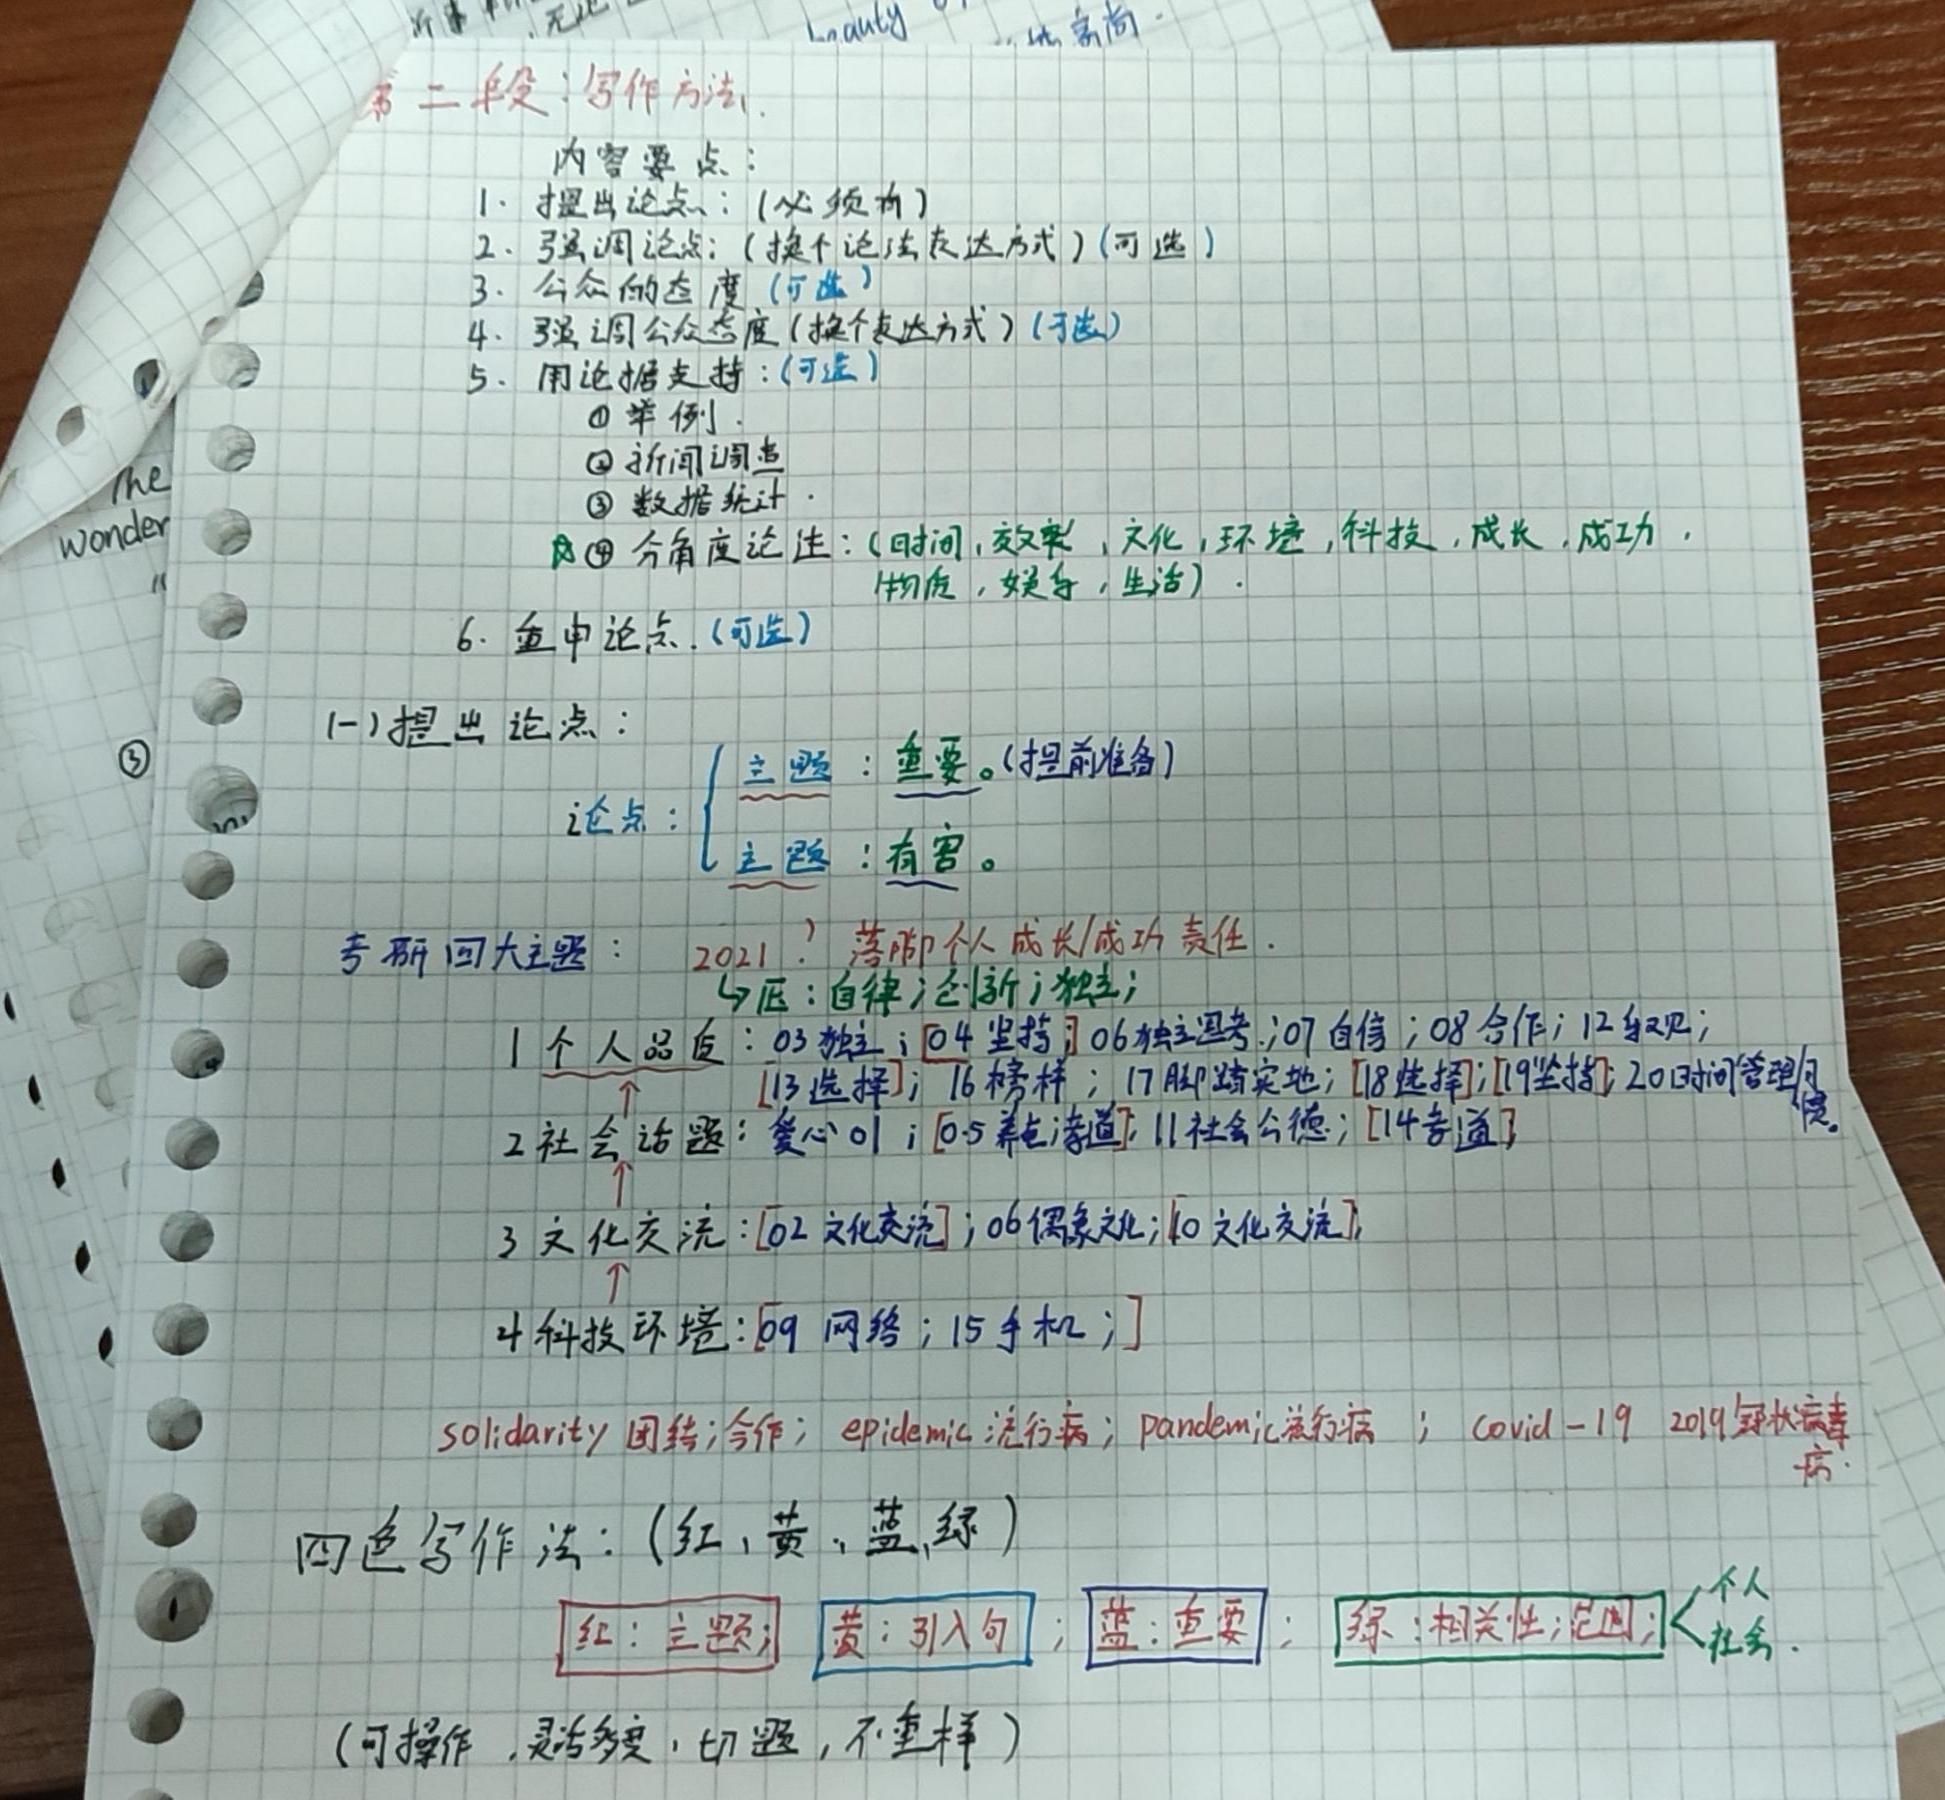 beauty
The
wonder
③
第二段：写作方法.
内容要点：
1. 提出论点：(必须有)
2. 强调论点：(换个论法表达方式)(可选)
3. 公众的态度 (可选)
4. 强调公众态度(换个表达方式)(可选)
5. 用论据支持：(可选)
① 举例.
② 新闻调查
③ 数据统计.
④ 分角度论述：(时间,效率,文化,环境,科技,成长,成功,
物质,娱乐,生活).
6. 重申论点.(可选)
(一)提出论点：
论点：
主题：重要。(提前准备)
主题：有害。
考研四大主题： 2021? 落脚个人成长/成功责任.
↳正：自律；创新；独立；
1 个人品质：03独立；[04坚持；]06独立思考；07自信；08合作；12乐观；
[13选择]；16榜样；17脚踏实地；[18选择]；[19坐持]；20时间管理习惯。
2 社会话题：爱心01；[05养老孝道]；11社会公德；[14孝道]
3 文化交流：[02文化交流]；06偶象文化；[10文化交流]；
4 科技环境：[09 网络；15手机；]
solidarity 团结；合作；epidemic 流行病；pandemic流行病；covid-19 2019冠状病毒病.
四色写作法：(红、黄、蓝、绿)
红：主题； 黄：引入句； 蓝：重要； 绿：相关性；范围； 个人
社会.
(可操作,灵活多变,切题,不重样)